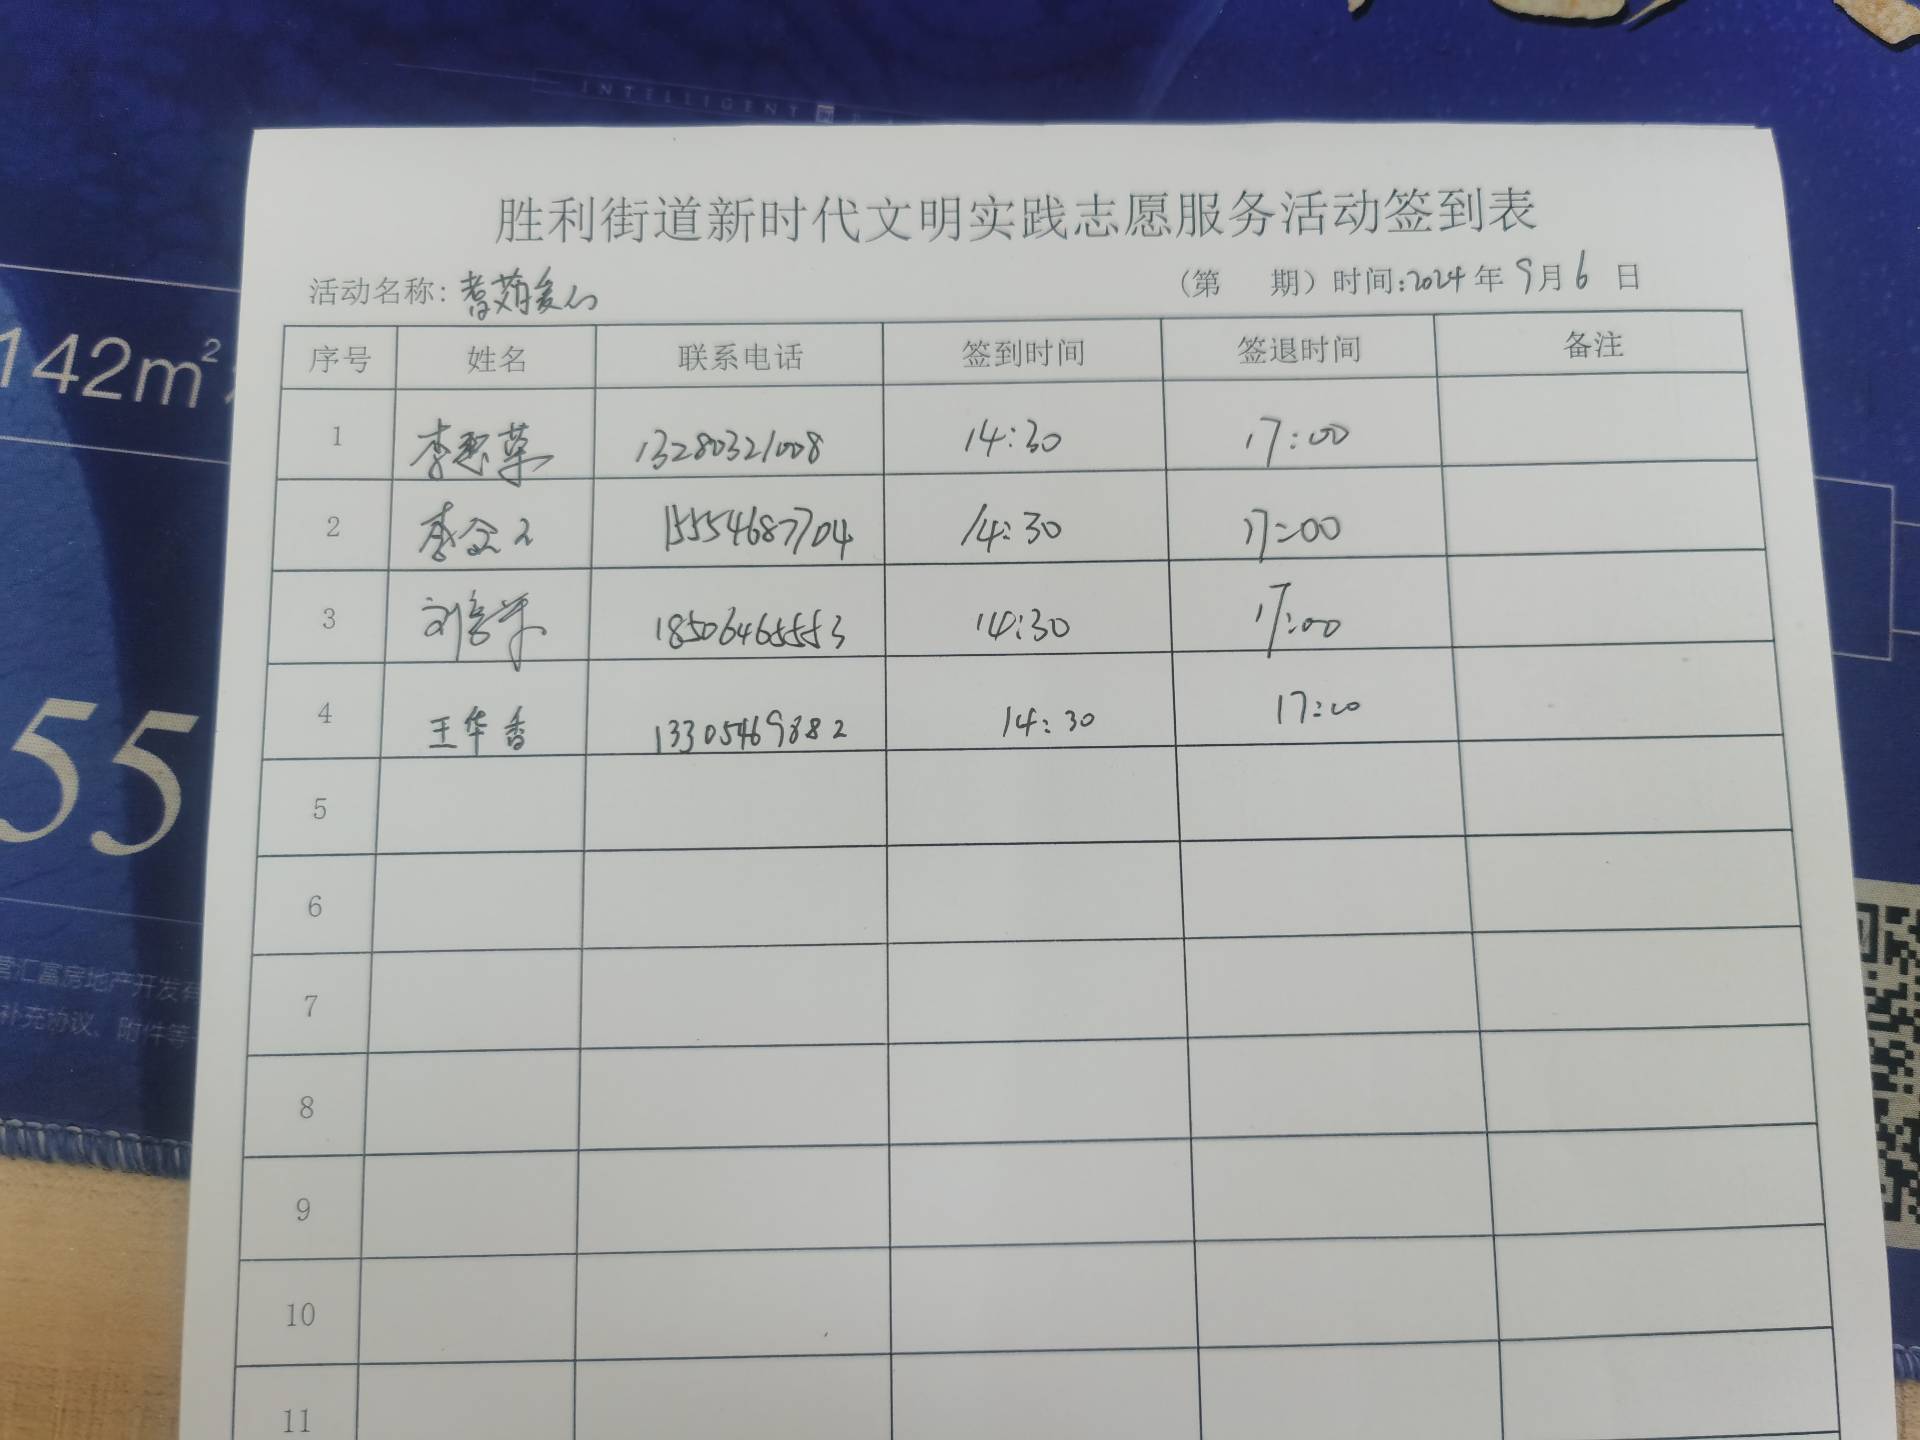 INTELLIGENT
胜利街道新时代文明实践志愿服务活动签到表
活动名称: (第 期) 时间:2024年9月6日
142m²
序号 姓名 联系电话 签到时间 签退时间 备注
1 李 13280321008 14:30 17:00
2 李 15554687704 14:30 17:00
3 刘 18506465553 14:30 17:00
4 王华香 13305469882 14:30 17:00
55
5
6
7
营汇富房地产开发有
补充协议、附件等
8
9
10
11